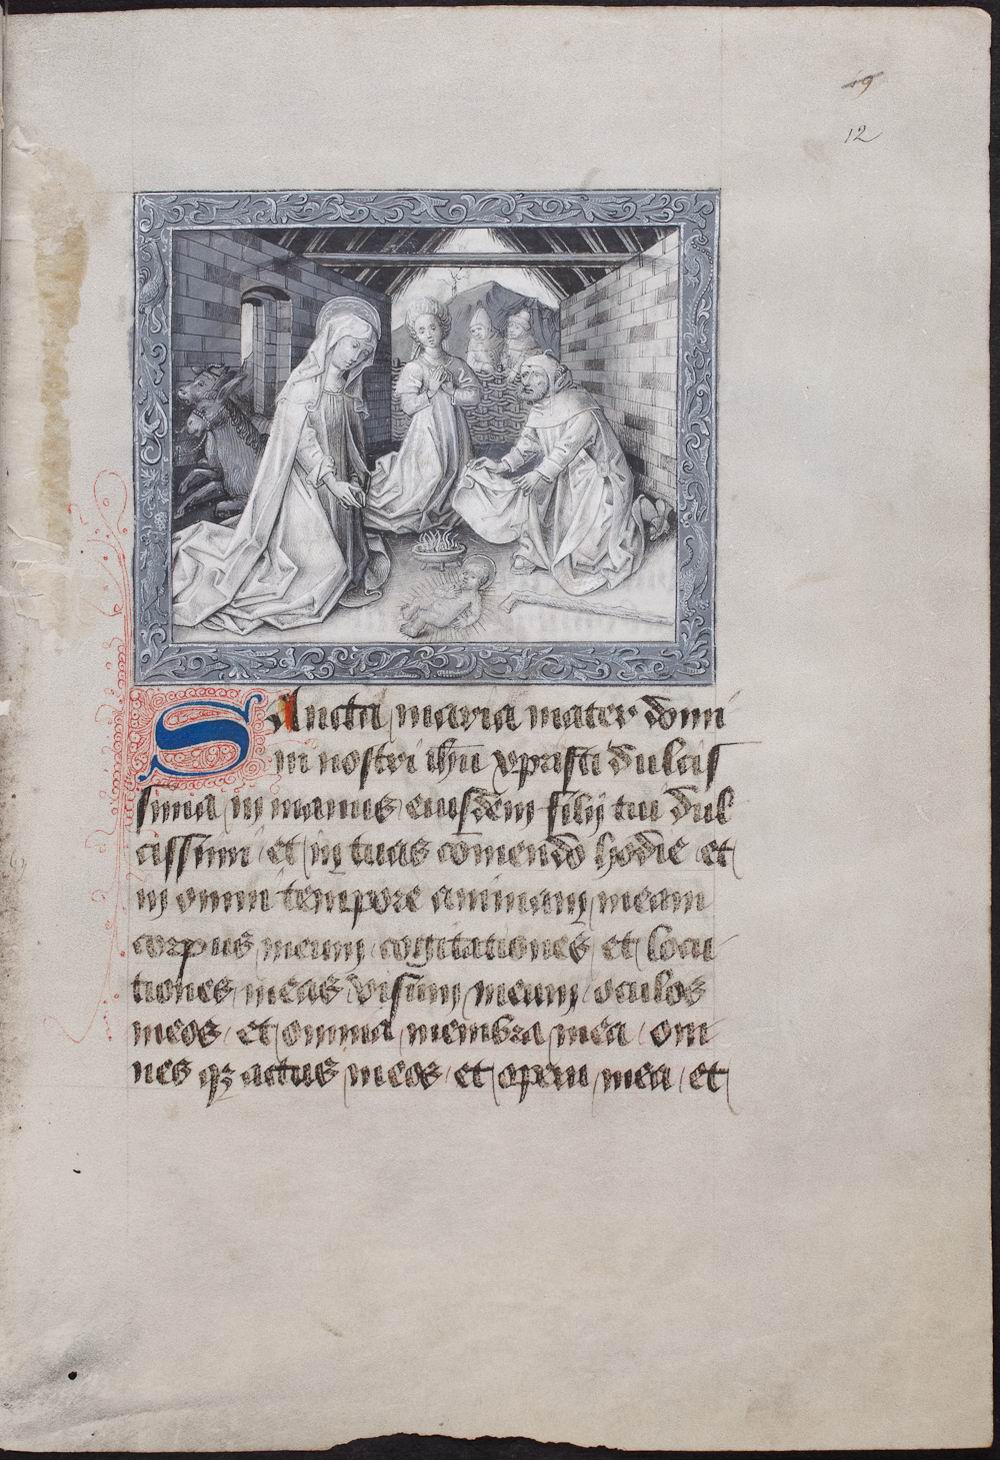 49
12
Sancta maria mater domi
ni nostri ihu xpristi dulcis
sima in manus eiusdem filij tui dul
cissimi et in tuas comendo hodie et
in omni tempore animam meam
corpus meum cogitationes et locu
tiones meas visum meum oculos
meos et omnia membra mea om
nes qz actus meos et opera mea et